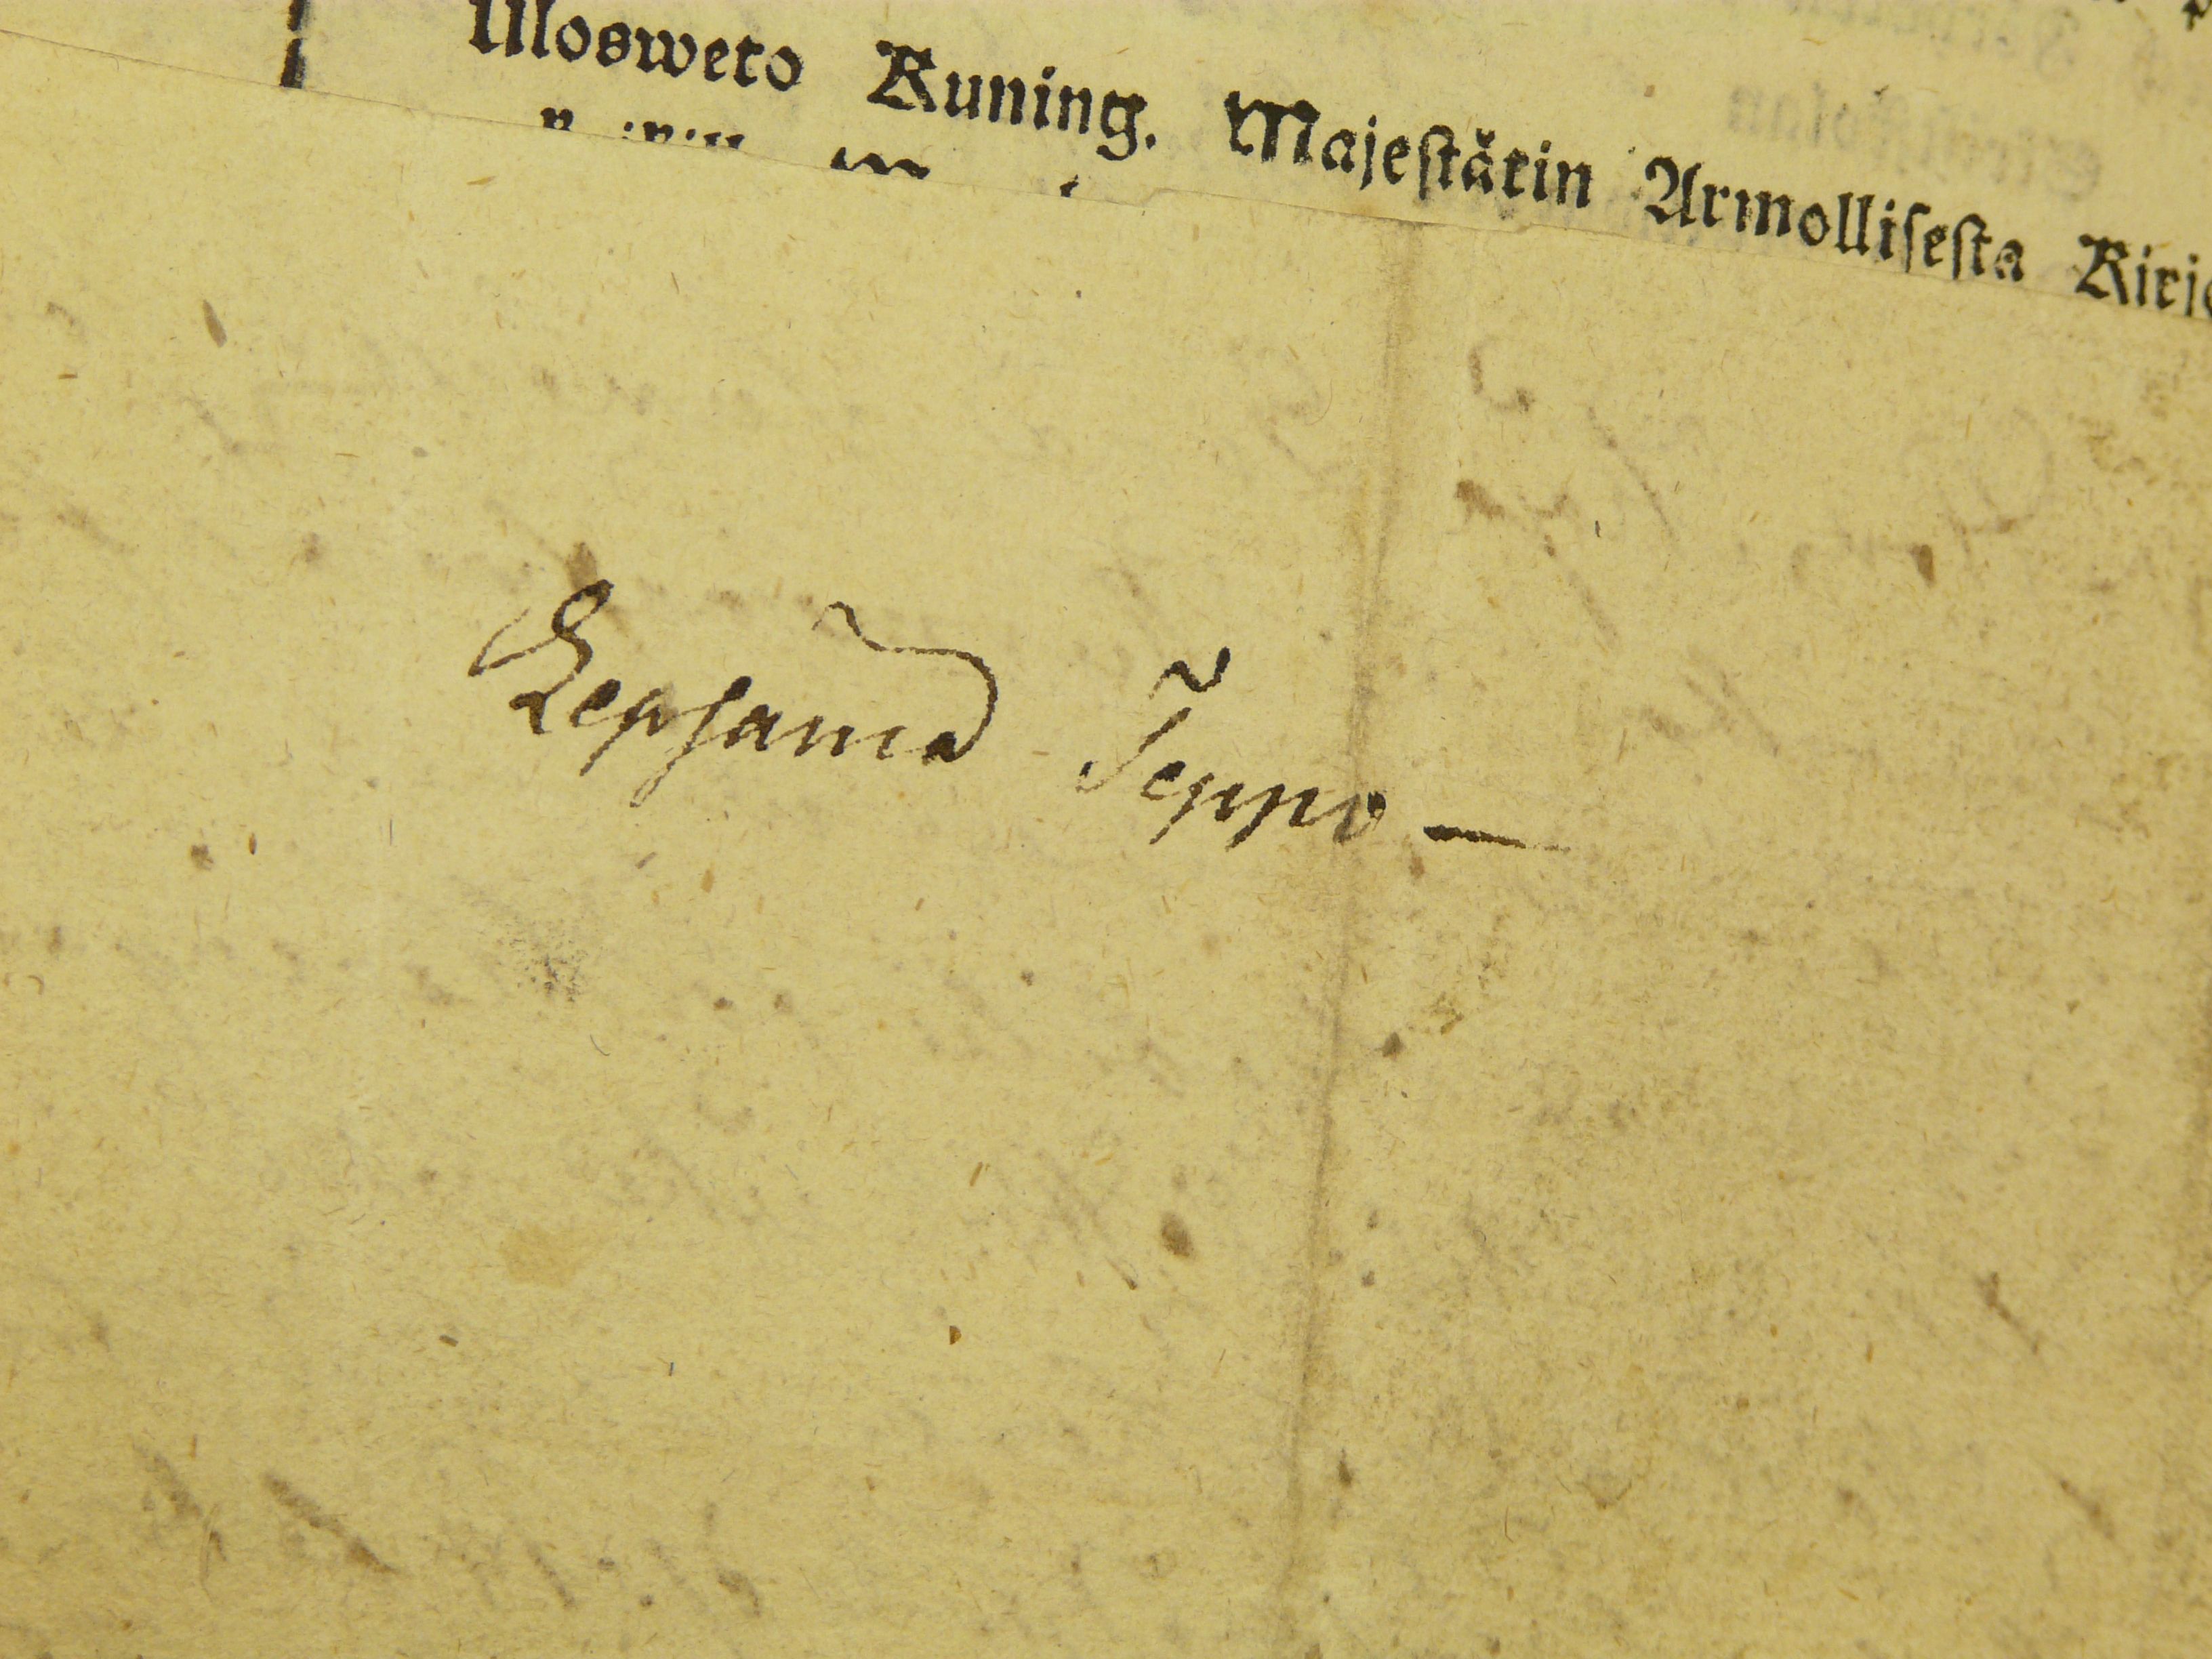 Ulosweto Kuning. Majestätin Armollisesta Kirj
Lepsamä Seppo —